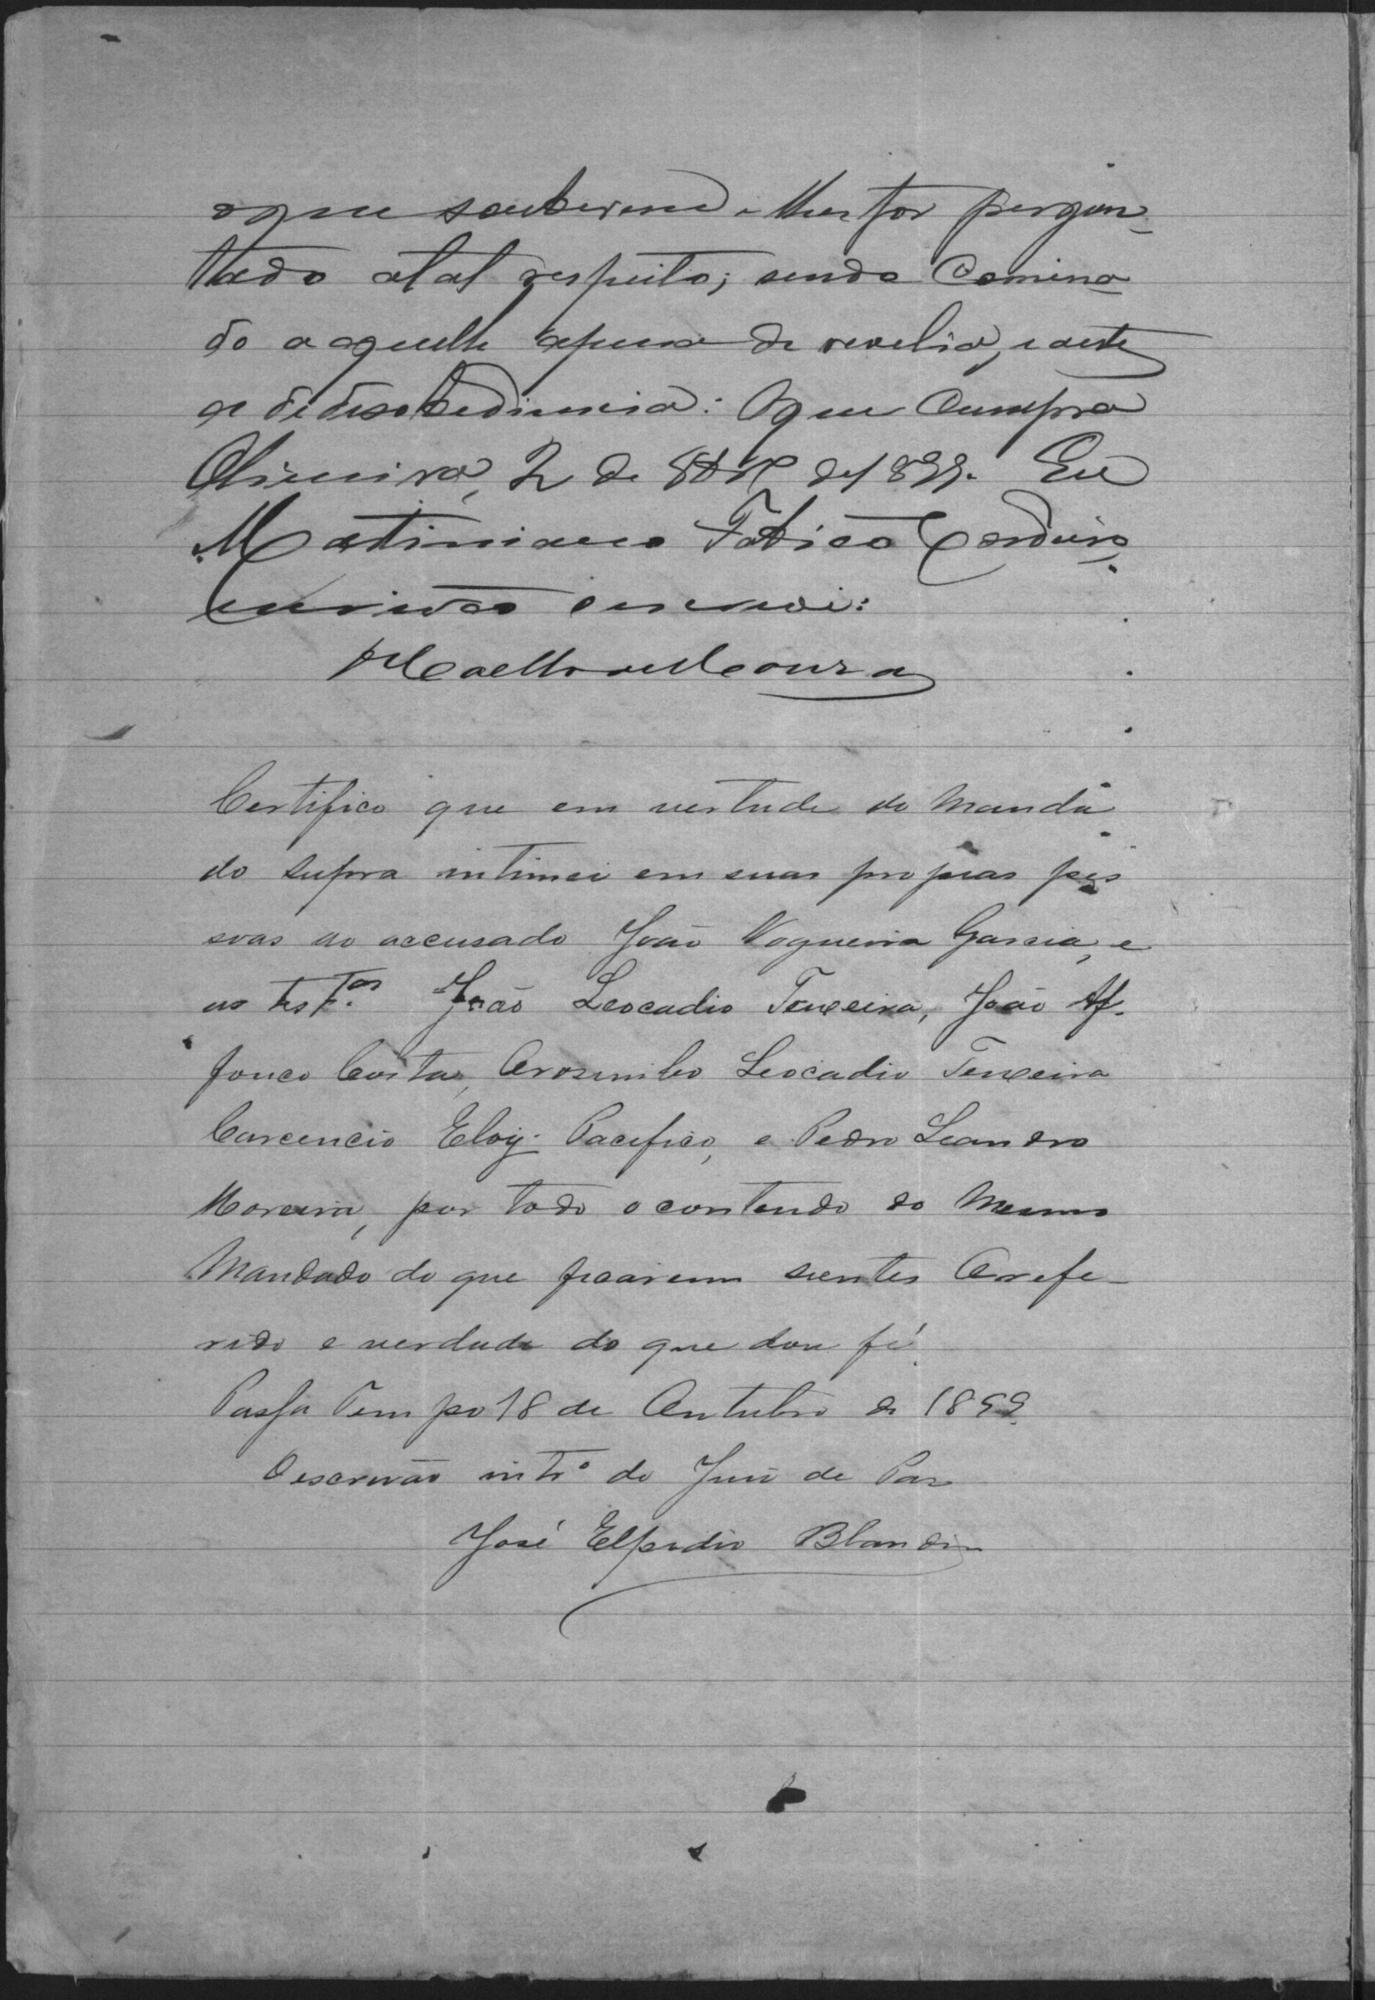 o que souberem e lhes for pergun-
tado a tal respeito; sendo comina-
do a aquelle a pena de revelia, e a estes
a de desobediencia: O que cumpra
Oliveira, 2 de de 1899. Eu
Martiniano Fabião Cordeiro
escrivão o escrevi:
Certifico que em vertude do manda
do supra intimei em suas proprias pes
soas ao accusado João Nogueira Garcia, e
as test.as João Leocadio Teixeira, João Af-
fonco Costa, Orosimbo Leocadio Teixeira
Eloy Pacifico, e Pedro Leandro
Moreira, por todo o contendo do mesmo
Mandado do que ficarem sientes O refe-
rido e verdade do que dou fé.
Passa Tempo 18 de Outubro de 1899.
O escrivão intr.o do Juiz de Paz
José Elpidio Blandin